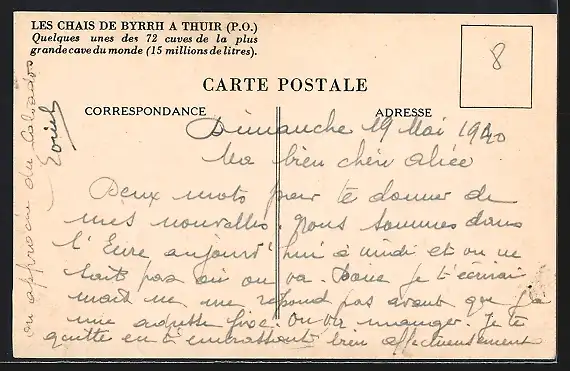 LES CHAIS DE BYRRH A THUIR (P.O.)
Quelques unes des 72 cuves de la plus
grande cave du monde (15 millions de litres).
8
CARTE POSTALE
CORRESPONDANCE
ADRESSE
Dimanche 19 Mai 1940
Ma bien chère Alice
Deux mots pour te donner de
mes nouvelles. Nous sommes dans
l'Eure aujourd'hui à midi et on ne
sait pas où on va. Donc je t'écrirai
mais ne me repond pas avant que j'ai
une adresse fixe. On va manger. Je te
quitte en t'embrassant bien affectueusement
on approche du Calvados